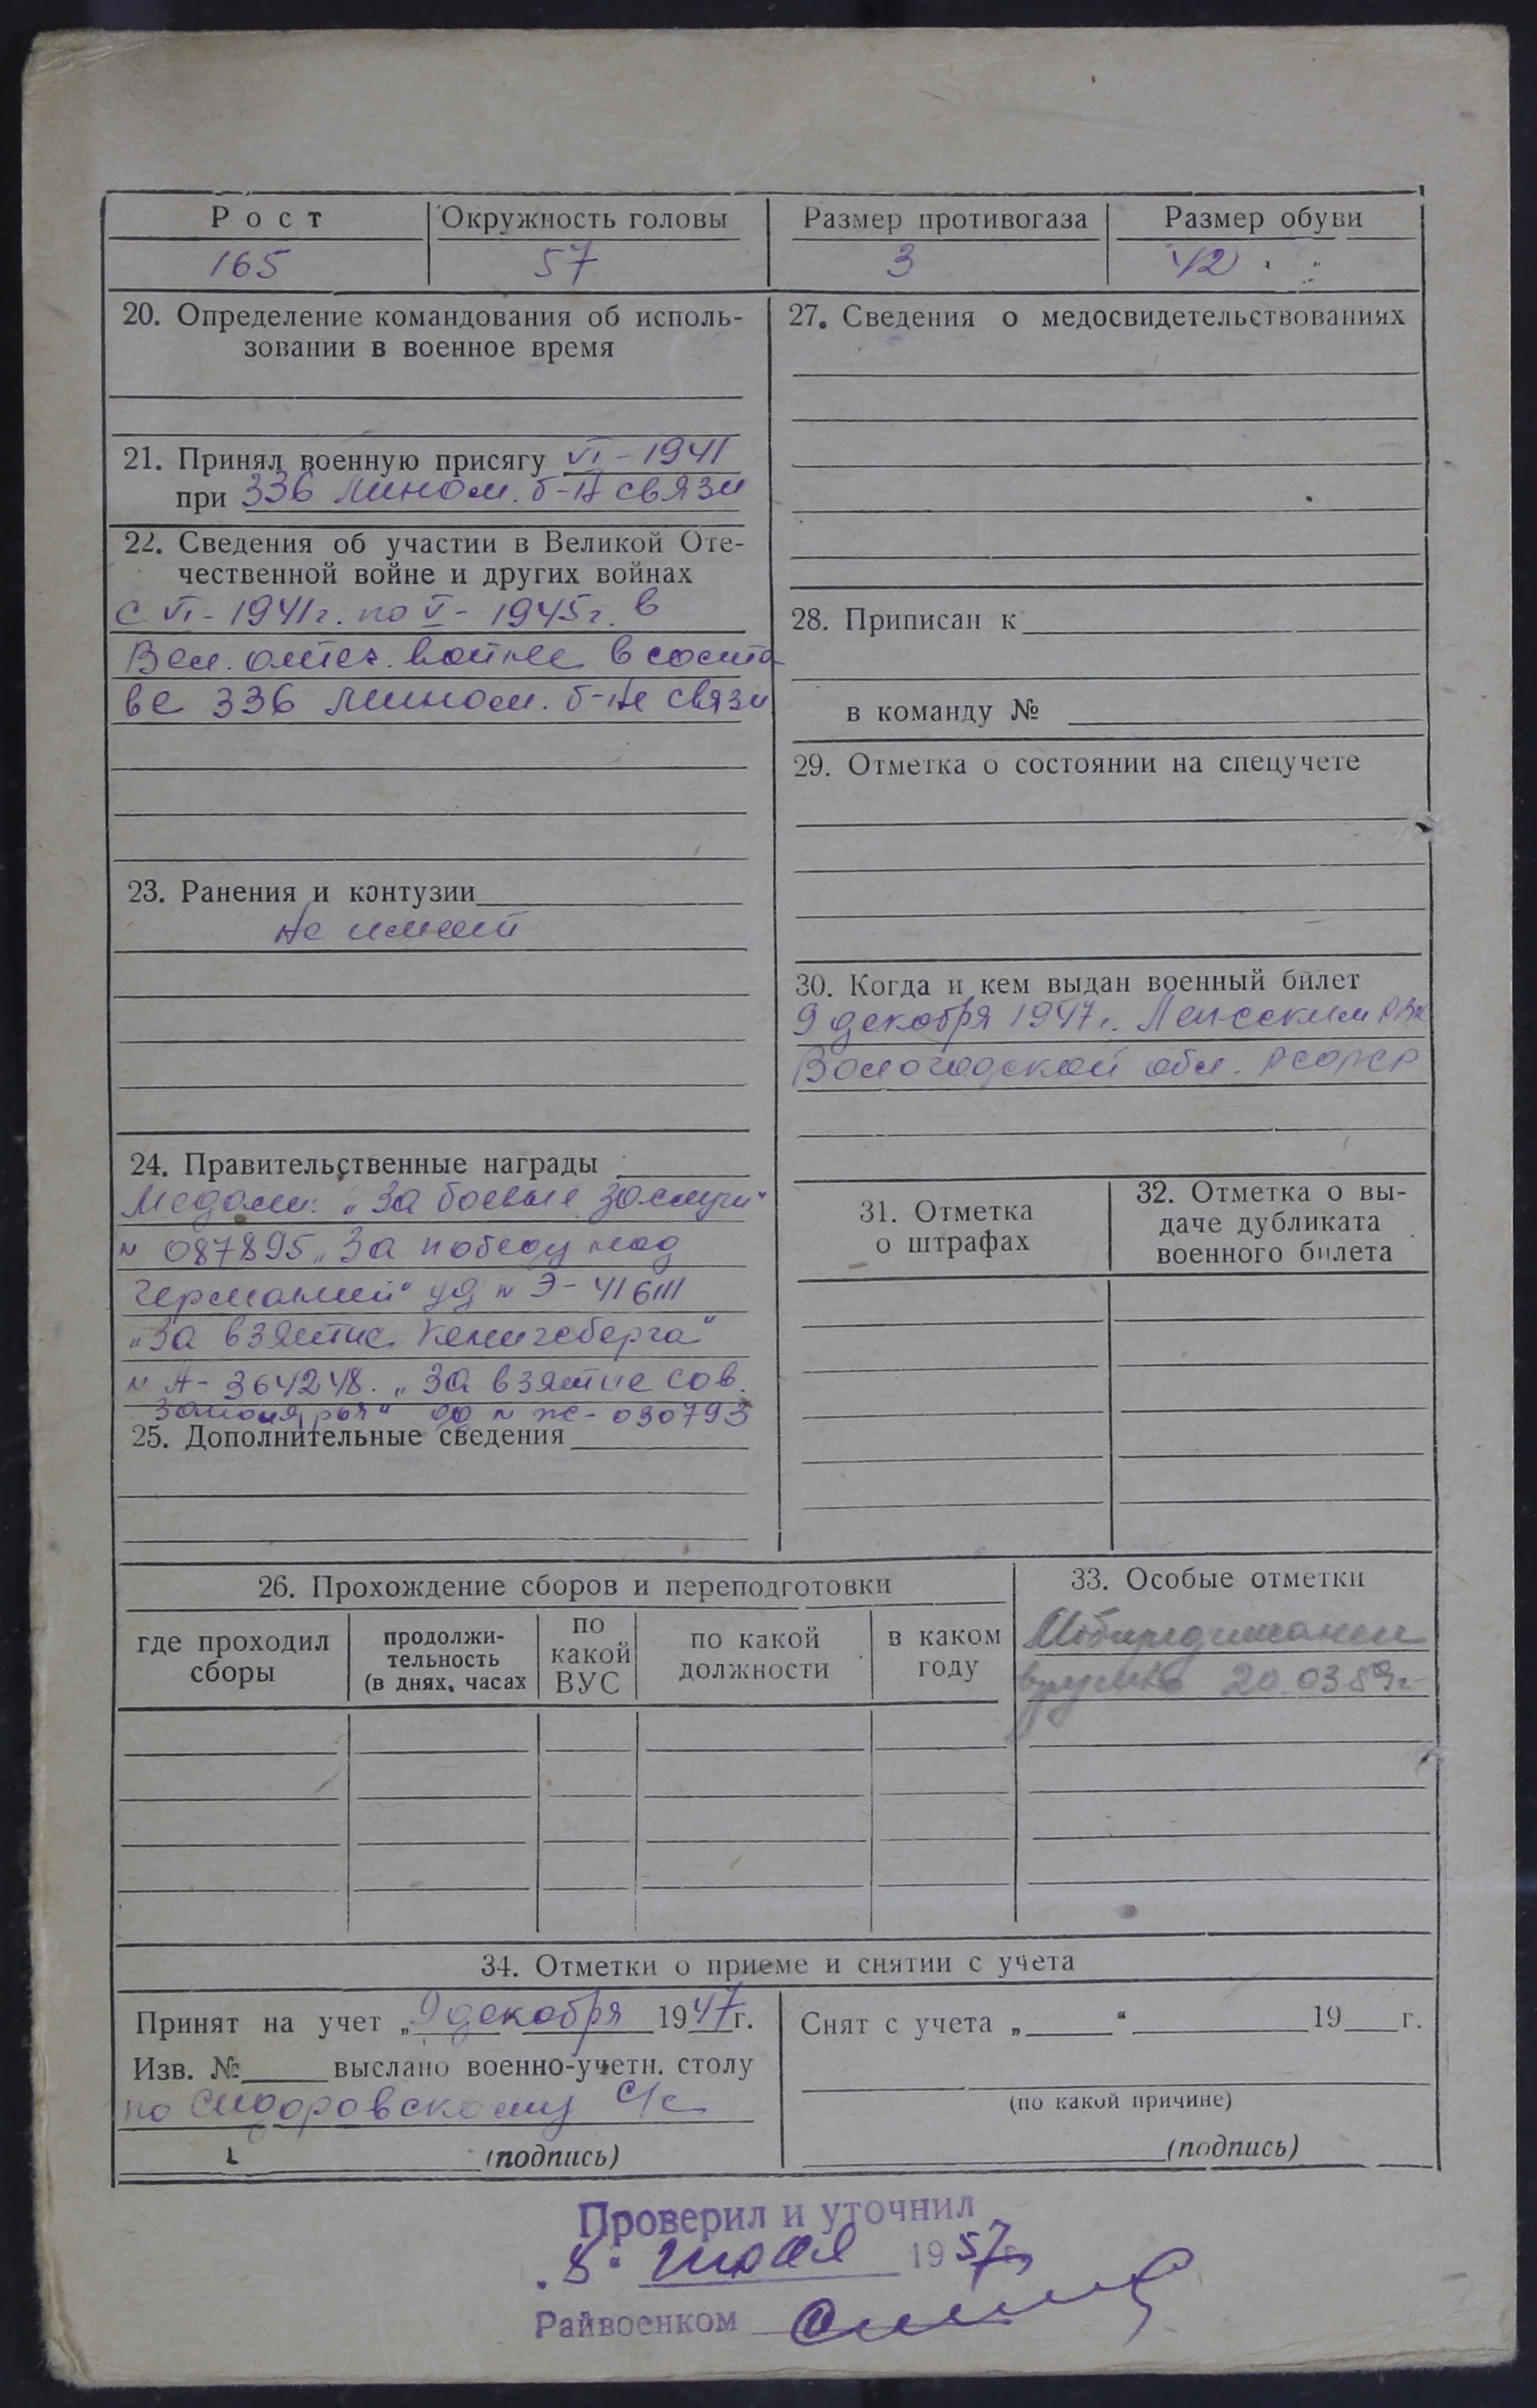 Рост
Окружность головы
Размер противогаза
Размер обуви
165
57
3
42
20. Определение командования об исполь-
зовании в военное время
21. Принял военную присягу VI - 1941
при 336 мином. б-н связи
22. Сведения об участии в Великой Оте-
чественной войне и других войнах
с VI - 1941г. по V - 1945г. в
Вел. отеч. войне в соста
ве 336 мином. б-не связи
23. Ранения и контузии
Не имеет
24. Правительственные награды
Медали: „За боевые заслуги"
№ 087895 „За победу над
Германией" уд № Э - 41 6111
„За взятие Кенигсберга"
№ А - 364248. „За взятие сов.
Заполярья" уд № ж - 030793
25. Дополнительные сведения
27. Сведения о медосвидетельствованиях
28. Приписан к
в команду №
29. Отметка о состоянии на спецучете
30. Когда и кем выдан военный билет
9 декабря 1947г. Ленским РВК
Вологодской обл. РСФСР
31. Отметка
о штрафах
32. Отметка о вы-
даче дубликата
военного билета
26. Прохождение сборов и переподготовки
где проходил
сборы
продолжи-
тельность
(в днях, часах
по
какой
ВУС
по какой
должности
в каком
году
33. Особые отметки
20.03.89г
34. Отметки о приеме и снятии с учета
Принят на учет „9 декабря 1947г.
Изв. № выслано военно-учетн. столу
по Сидоровскому с/с
(подпись)
Снят с учета „ " 19 г.
(по какой причине)
(подпись)
Проверил и уточнил
„8" июля 1957г
Райвоенком